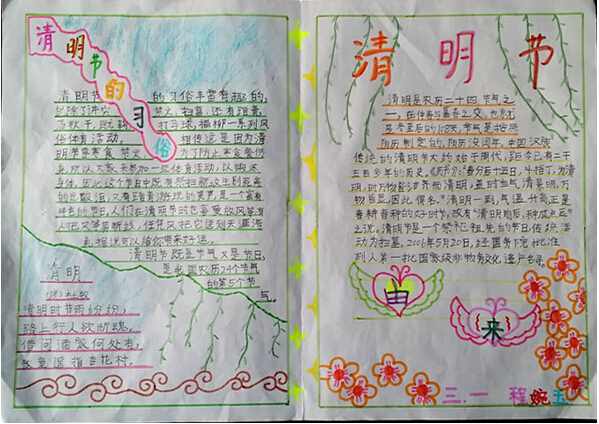 清明节的习俗
清明节 的习俗丰富有趣的,
火、扫墓,还有踏青、
荡秋千、蹴鞠、打马球、插柳一系列风
俗体育活动。相传这是因为清
明节要寒食禁火,为了防止寒食冷餐伤
身,所以大家来参加一些体育活动,以锻炼
身体,因此,这个节日中既有祭扫新坟生别死离
的悲酸泪,又有踏青游玩的笑声,是一个富有
特色的节日,人们在清明节时也喜爱放风筝有
人把风筝剪断线,任凭风把它送到天涯海
角,据说可以给你带来好运。
清明节既是节气又是节日,
是我国农历24个节气
的第5个节
气。
清明
杜牧
清明时节雨纷纷,
路上行人欲断魂。
借问酒家何处有,
牧童遥指杏花村。
清明节
清明是农历二十四节气之
一,在仲春与暮春之交,也就
是冬至后的108天,节气是按照
阴历制定的,阴历没闰年,中国汉族
传统的清明节大约始于周代,距今已有二千
五百多年的历史。《历书》:“春分后十五日,斗指丁,为清
明,时万物皆洁齐而清明,盖时当气清景明,万
物皆显,因此得名。”清明一到,气温升高,正是
春耕春种的好时节,故有“清明前后,种瓜点豆”
之说,清明节是一个祭祀祖先的节日,传统活
动为扫墓,2006年5月20日,经国务院批准
列入第一批国家级非物质文化遗产名录。
由
来
三.一 程婉玉